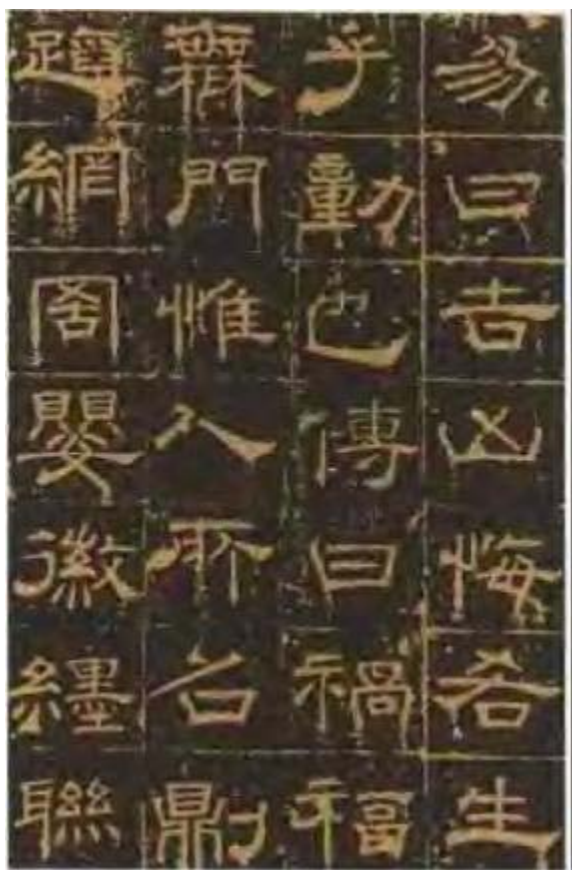 易曰吉凶悔吝生
乎動已傳曰禍福
無門惟人所召則
網罟嬰徽纆聯